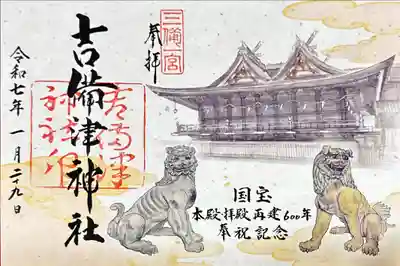 三備一宮
奉拝
吉備津神社
令和七年一月二十九日
国宝
本殿拝殿再建600年
奉祝記念